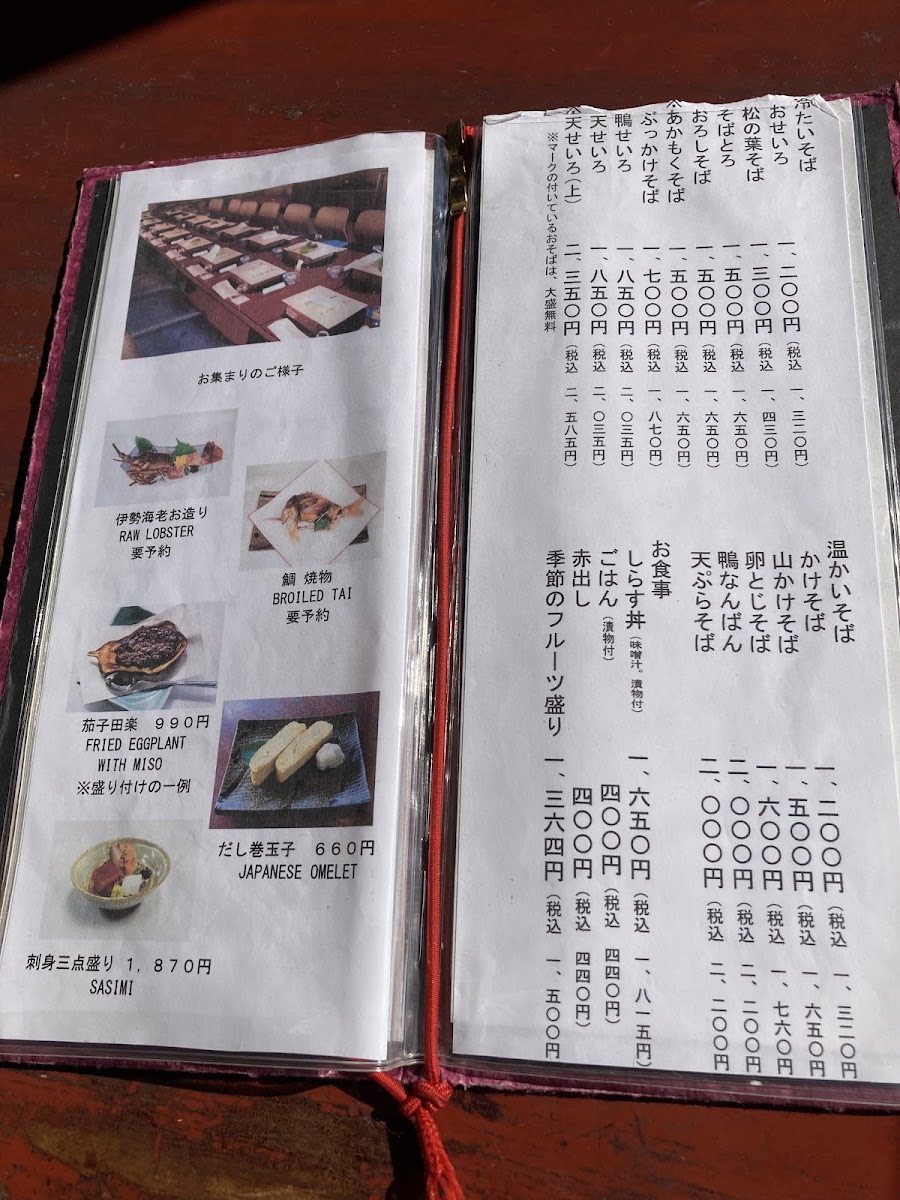 お集まりのご様子
伊勢海老お造り
RAW LOBSTER
要予約
鯛 焼物
BROILED TAI
要予約
茄子田楽 990円
FRIED EGGPLANT
WITH MISO
※盛り付けの一例
だし巻玉子 660円
JAPANESE OMELET
刺身三点盛り 1,870円
SASIMI
冷たいそば
おせいろ 一、二〇〇円(税込 一、三二〇円)
松の葉そば 一、三〇〇円(税込 一、四三〇円)
そばとろ 一、五〇〇円(税込 一、六五〇円)
おろしそば 一、五〇〇円(税込 一、六五〇円)
※あかもくそば 一、五〇〇円(税込 一、六五〇円)
ぶっかけそば 一、七〇〇円(税込 一、八七〇円)
鴨せいろ 一、八五〇円(税込 二、〇三五円)
天せいろ 一、八五〇円(税込 二、〇三五円)
※天せいろ(上) 二、三五〇円(税込 二、五八五円)
※マークの付いているおそばは、大盛無料
温かいそば
かけそば 一、二〇〇円(税込 一、三二〇円
山かけそば 一、五〇〇円(税込 一、六五〇円
卵とじそば 一、六〇〇円(税込 一、七六〇円
鴨なんばん 二、〇〇〇円(税込 二、二〇〇円
天ぷらそば 二、〇〇〇円(税込 二、二〇〇円
お食事
しらす丼(味噌汁。漬物付) 一、六五〇円(税込 一、八一五円)
ごはん(漬物付) 四〇〇円(税込 四四〇円)
赤出し 四〇〇円(税込 四四〇円)
季節のフルーツ盛り 一、三六四円(税込 一、五〇〇円